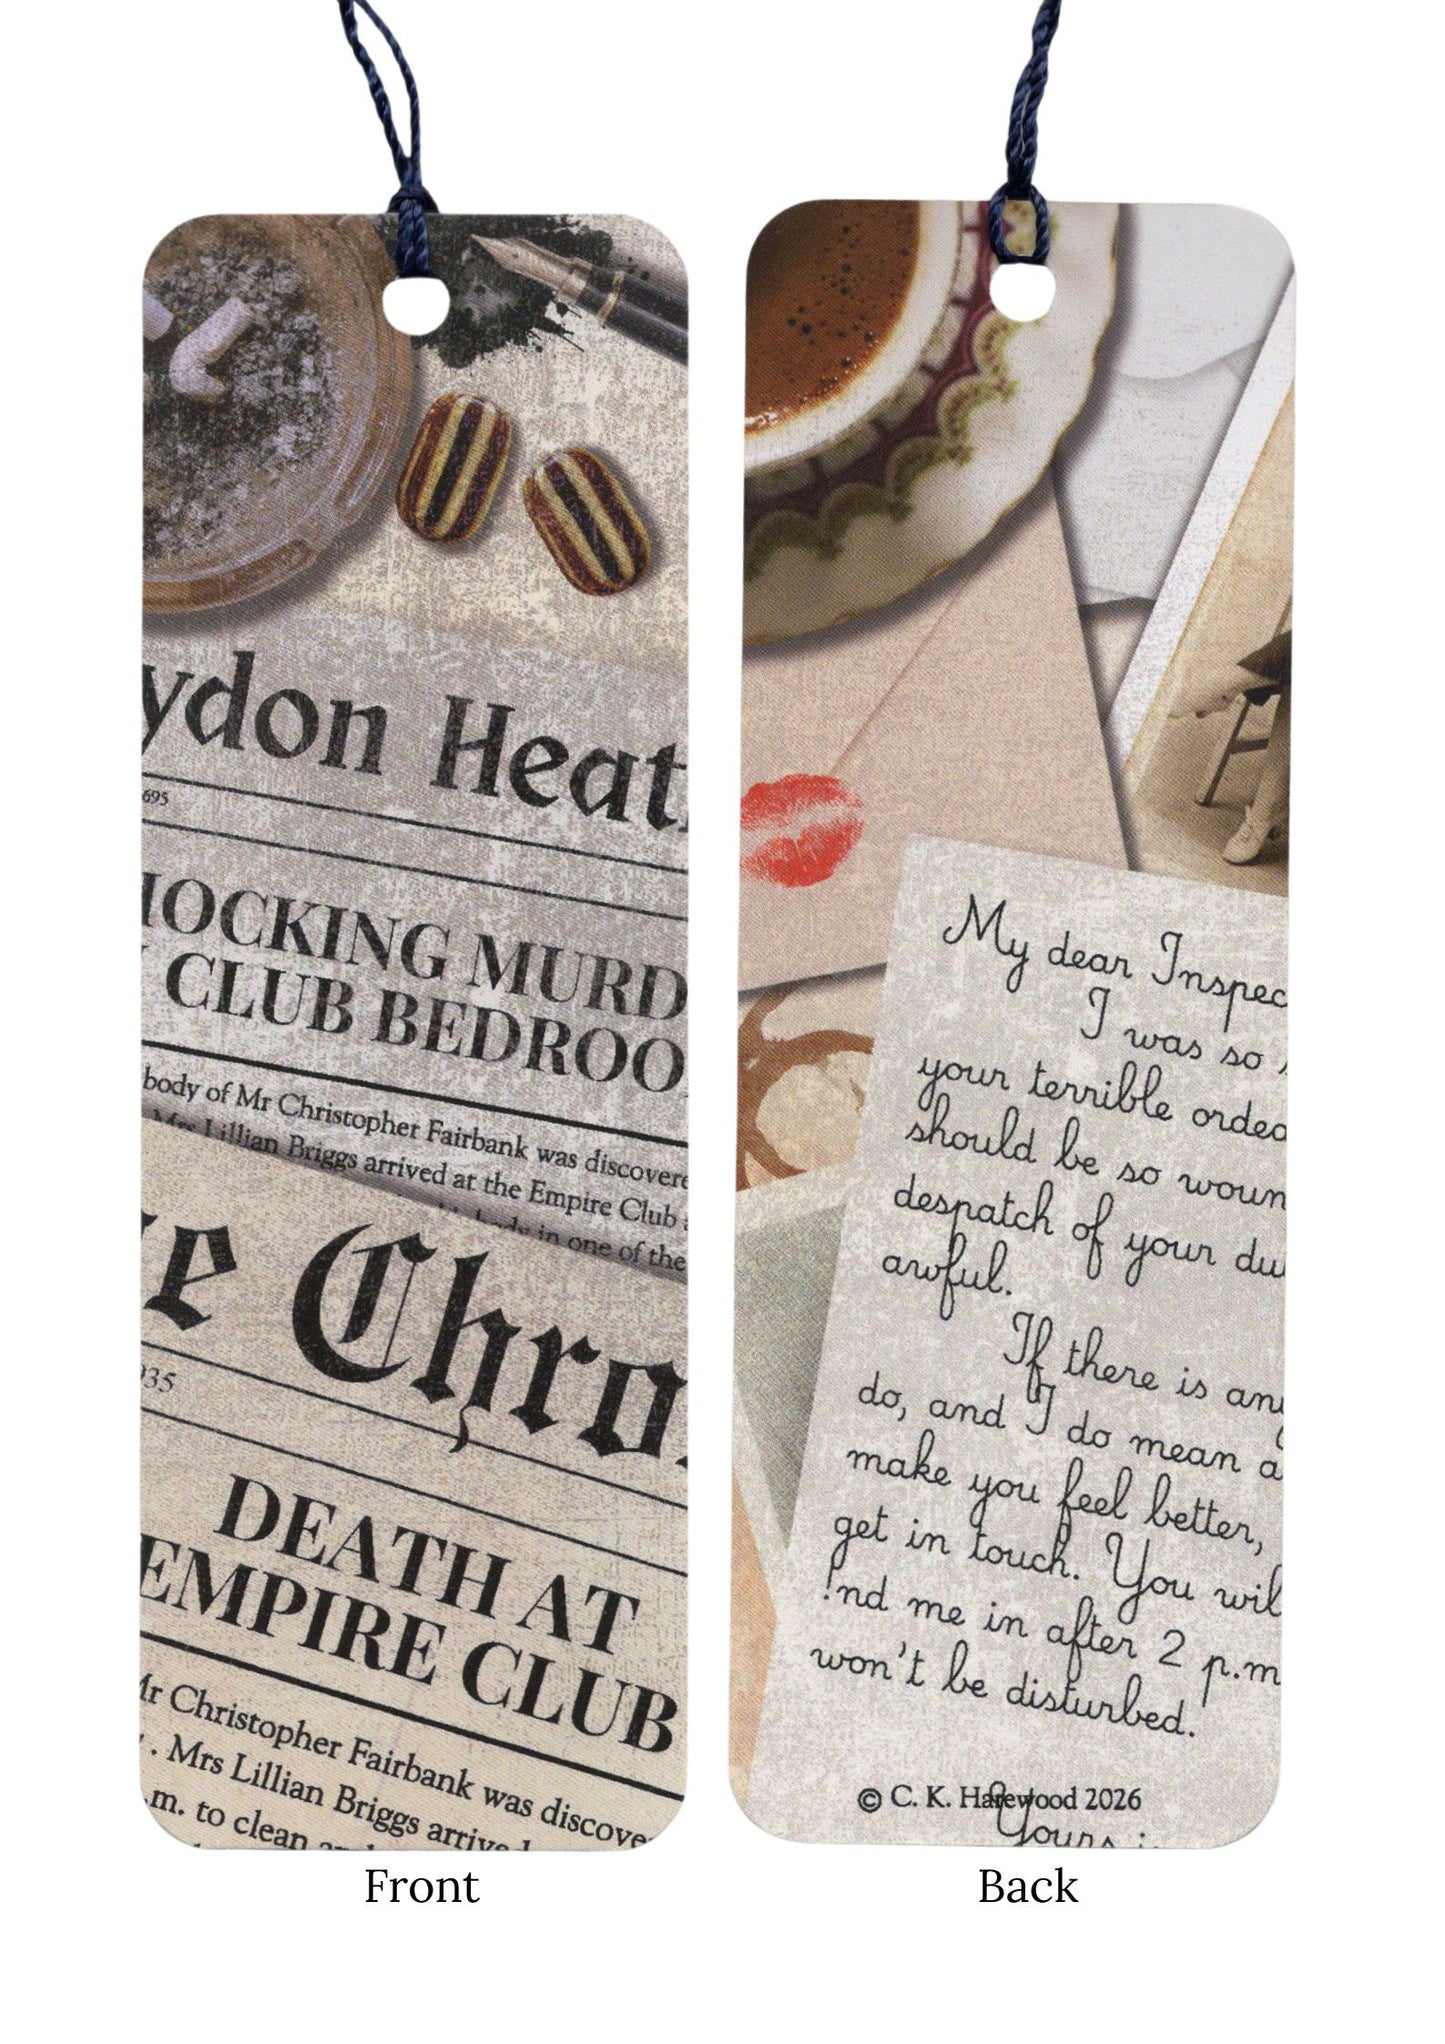 ydon Heat
695
HOCKING MURD
CLUB BEDROO
body of Mr Christopher Fairbank was discovere
Mrs Lillian Briggs arrived at the Empire Club
body in one of the
e Chro
935
DEATH AT
EMPIRE CLUB
Mr Christopher Fairbank was discove
. Mrs Lillian Briggs arrived
.m. to clean
Front
My dear Inspec
I was so
your terrible ordea
should be so woun
despatch of your du
awful.
If there is any
do, and I do mean a
make you feel better,
get in touch. You wil
nd me in after 2 p.m
won't be disturbed.
© C. K. Harewood 2026
Yours
Back